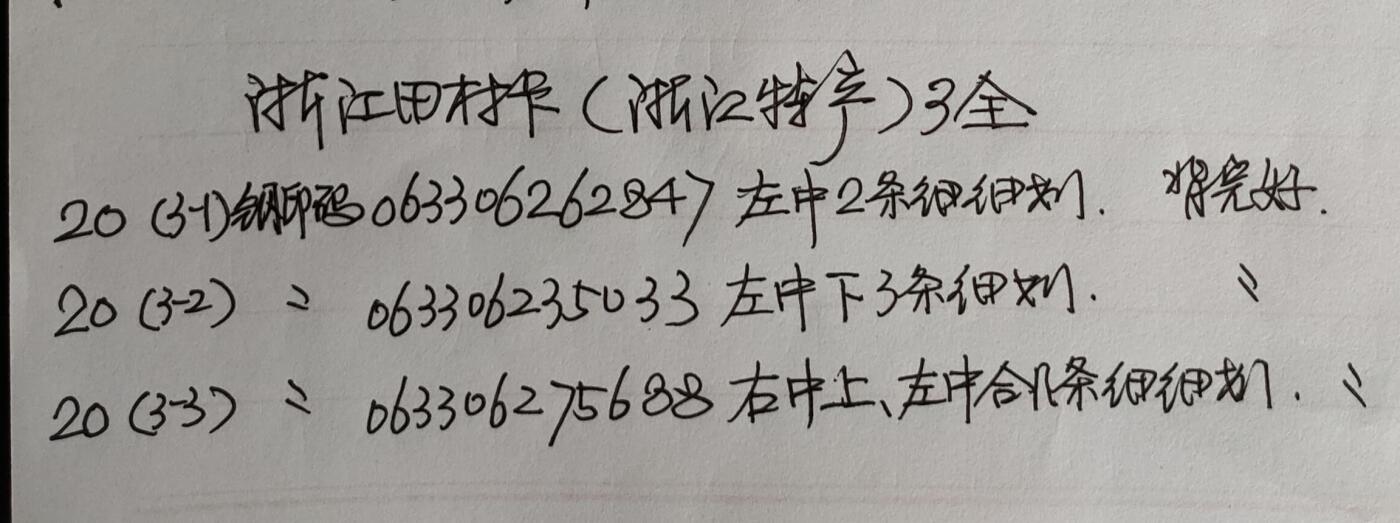 浙江田村卡(浙江特产)3全
20 (3-1)钢印码063306262847 左中2条细细划. 背完好.
20 (3-2) 〃 063306235033 左中下3条细划. 〃
20 (3-3) 〃 063306275688 右中上、左中合几条细细划. 〃